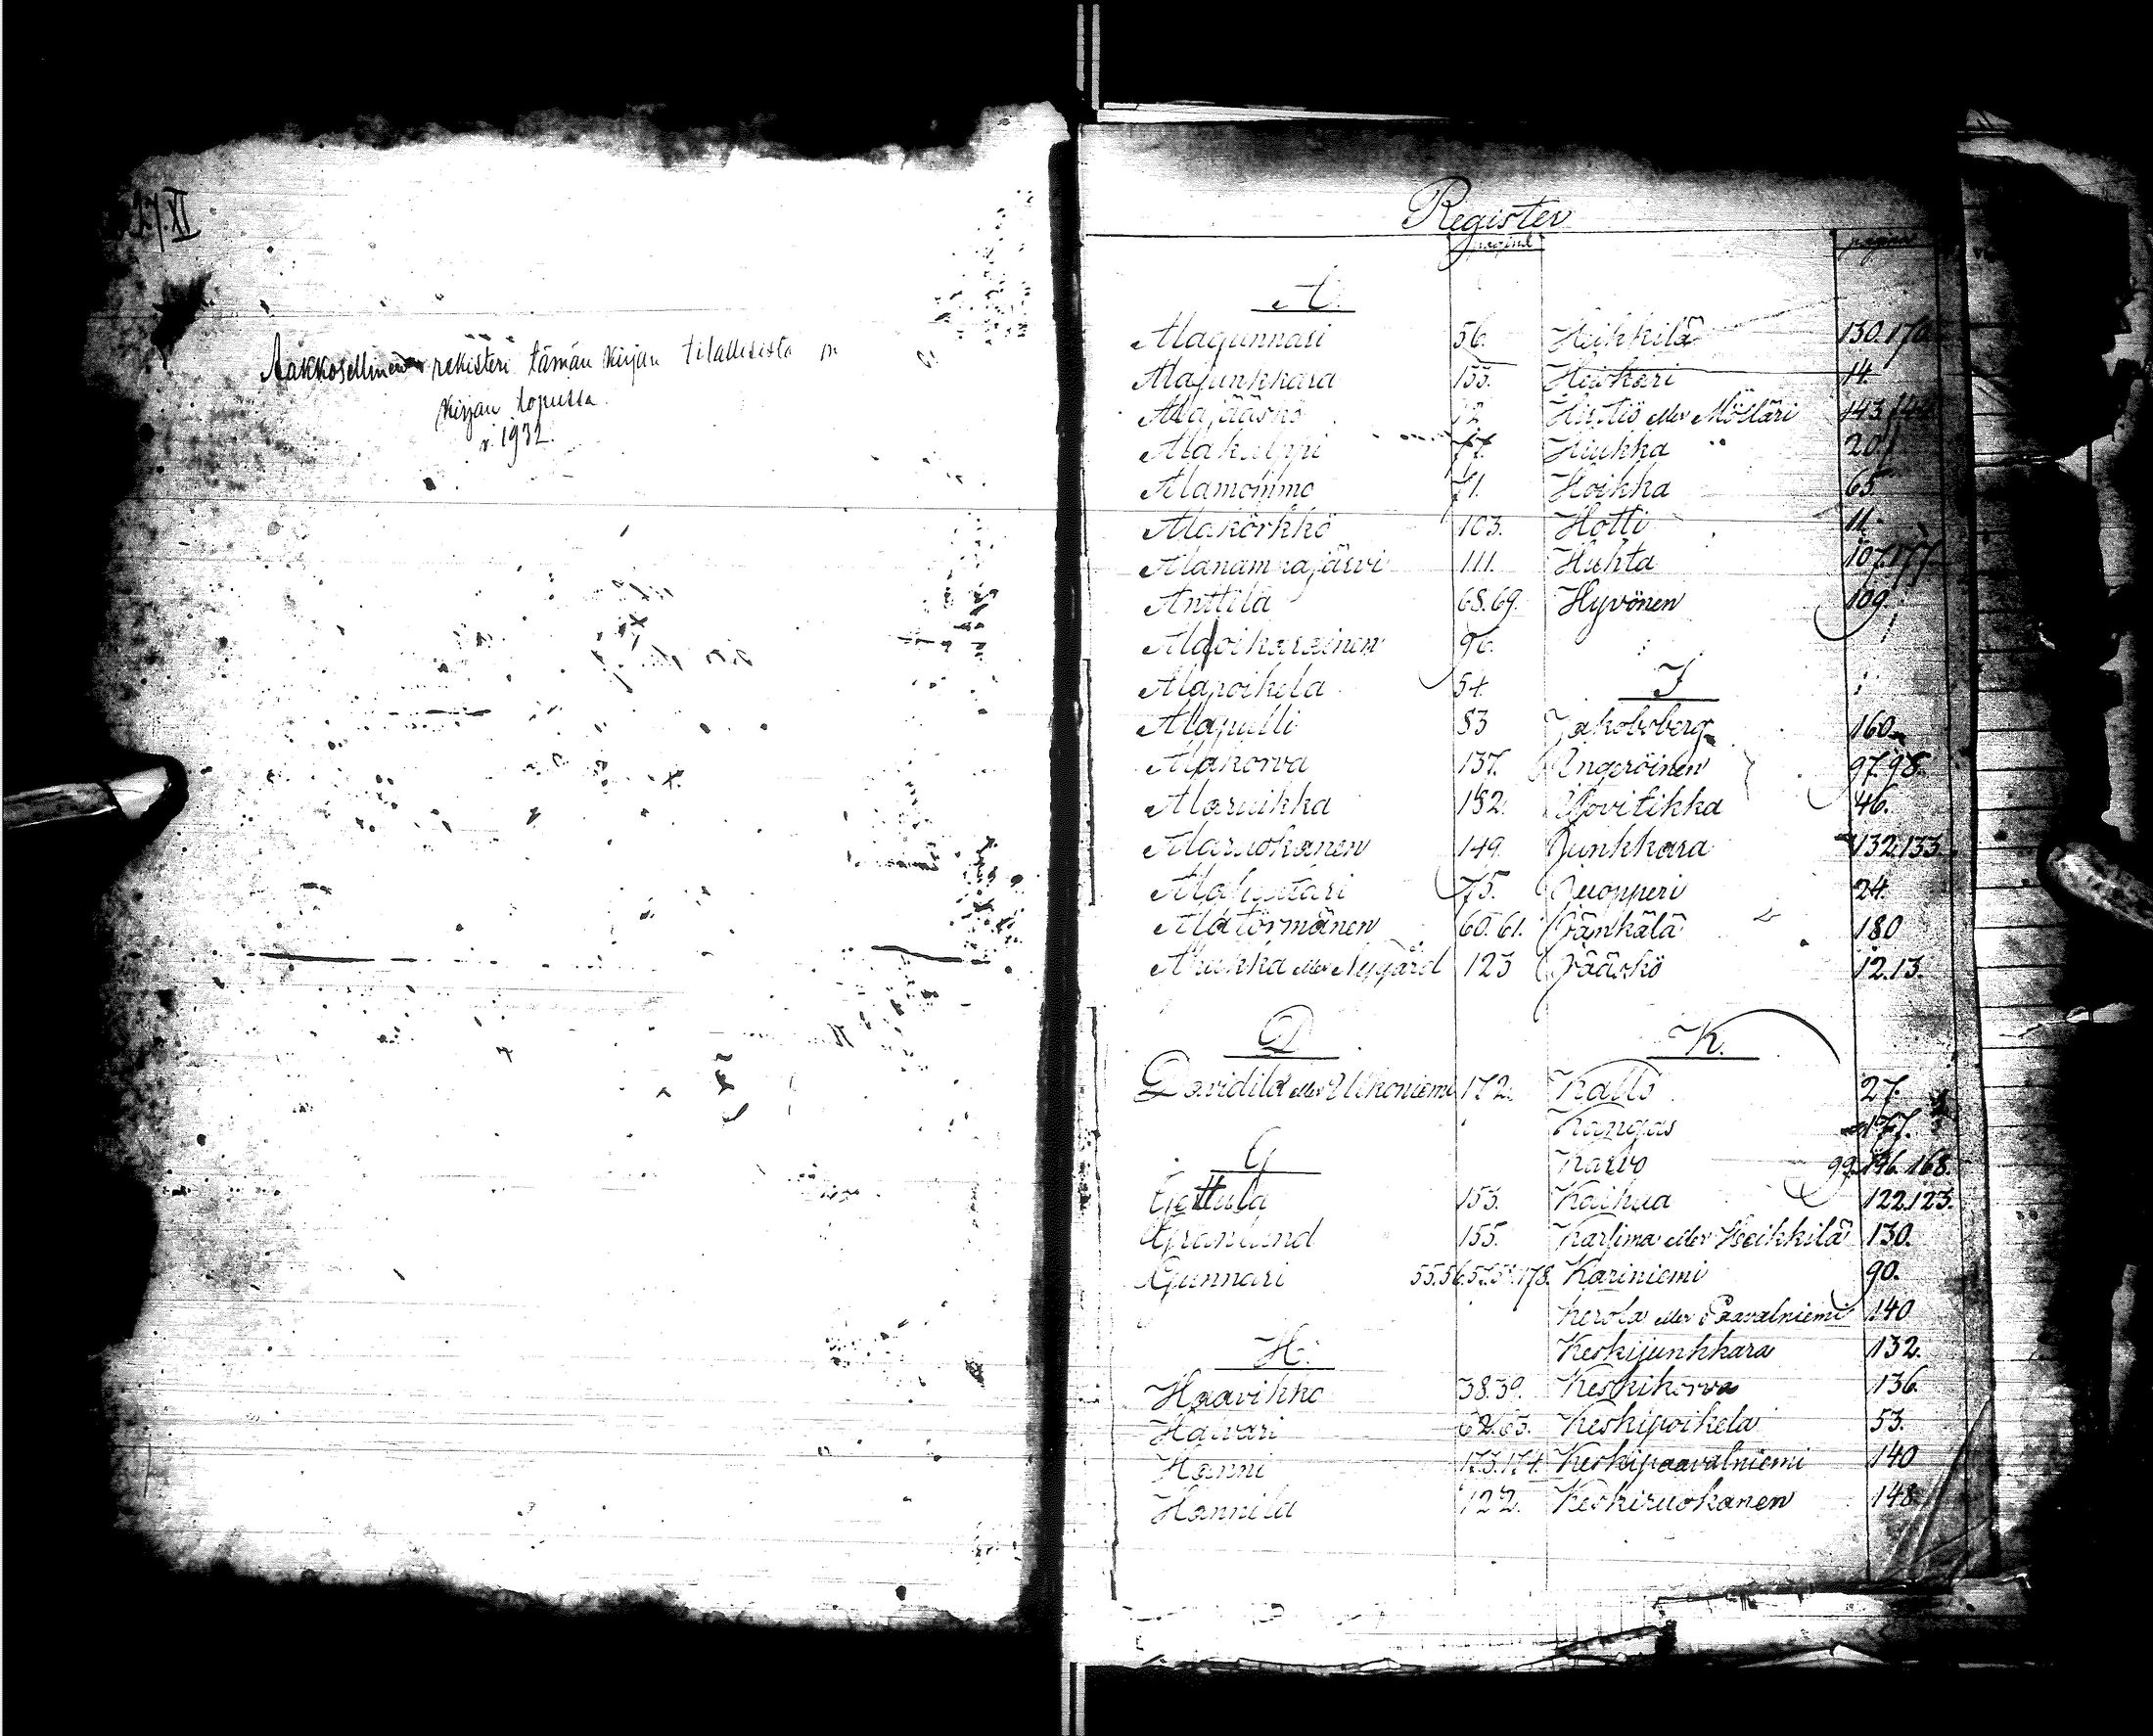 Aakkosellinen rekisteri tämän kirjan tilallisista on
kirjan lopussa.
v. 1932.
Register
pagina
A.
Alagunnari 56.
Alajunkkara 133.
Alajääskö 12
Alakulppi 77.
Alamommo 71.
Alakörkkö 103.
Alanamnajärvi 111.
Anttila 68.69.
Alaoikarainen 96.
Alapoikela 54.
Alapulli 83
Alakorva 137.
Alaruikka 182.
Alaruokanen 149.
75.
Alatörmänen 60.61.
eller Nygård 123
D
Davidila eller Ukoniemi 172.
G
Gettula 153.
Granlund 155.
Gunnari 55.56.57.58.178.
H.
Haavikko 38.39.
Halvari 62.63.
Hanni 173.174.
Hannila 122.
pagina
Heikkilä 130.170
Heiskari 14.
eller Möllari 143.144
Hiukka 20.
Hoikka 65.
Hotti 11.
Huhta 107.177.
Hyvönen 109.
J
Jakobsberg 160.
Ingeröinen 97.98.
46.
Junkkara 132.133
Juopperi 24.
Jänkälä 180
Jääskö 12.13.
K.
Kallo 27.
Kangas 177.
Karvo 99. 196. 168.
Kaihua 122.123.
Karjima eller Heikkilä 130.
Kariniemi 90.
Kerola eller Paavalniemi 140
Keskijunkkara 132.
Keskikorva 136.
Keskipoikela 53.
Keskipaavalniemi 140
Keskiruokanen 148